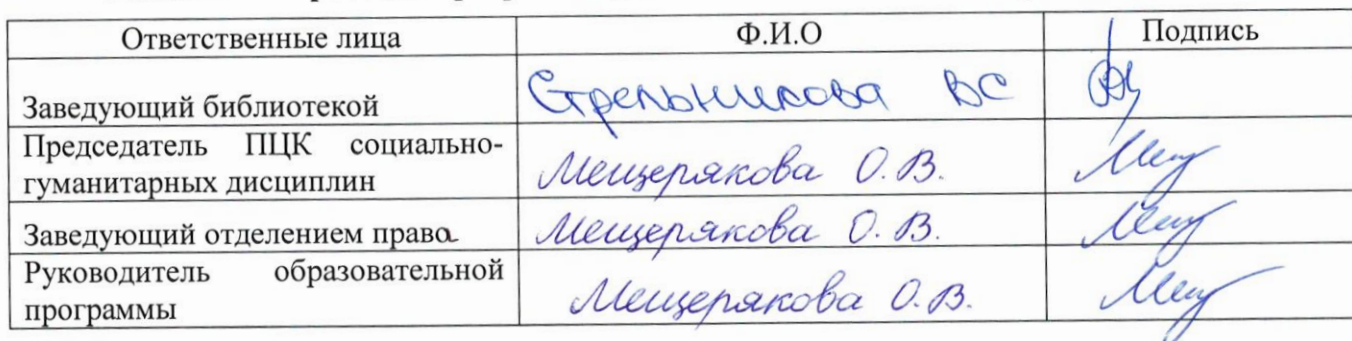 Ответственные лица Ф.И.О Подпись
Заведующий библиотекой Стрельникова ВС
Председатель ПЦК социально-
гуманитарных дисциплин Мещерякова О.В.
Заведующий отделением права Мещерякова О.В.
Руководитель образовательной
программы Мещерякова О.В.